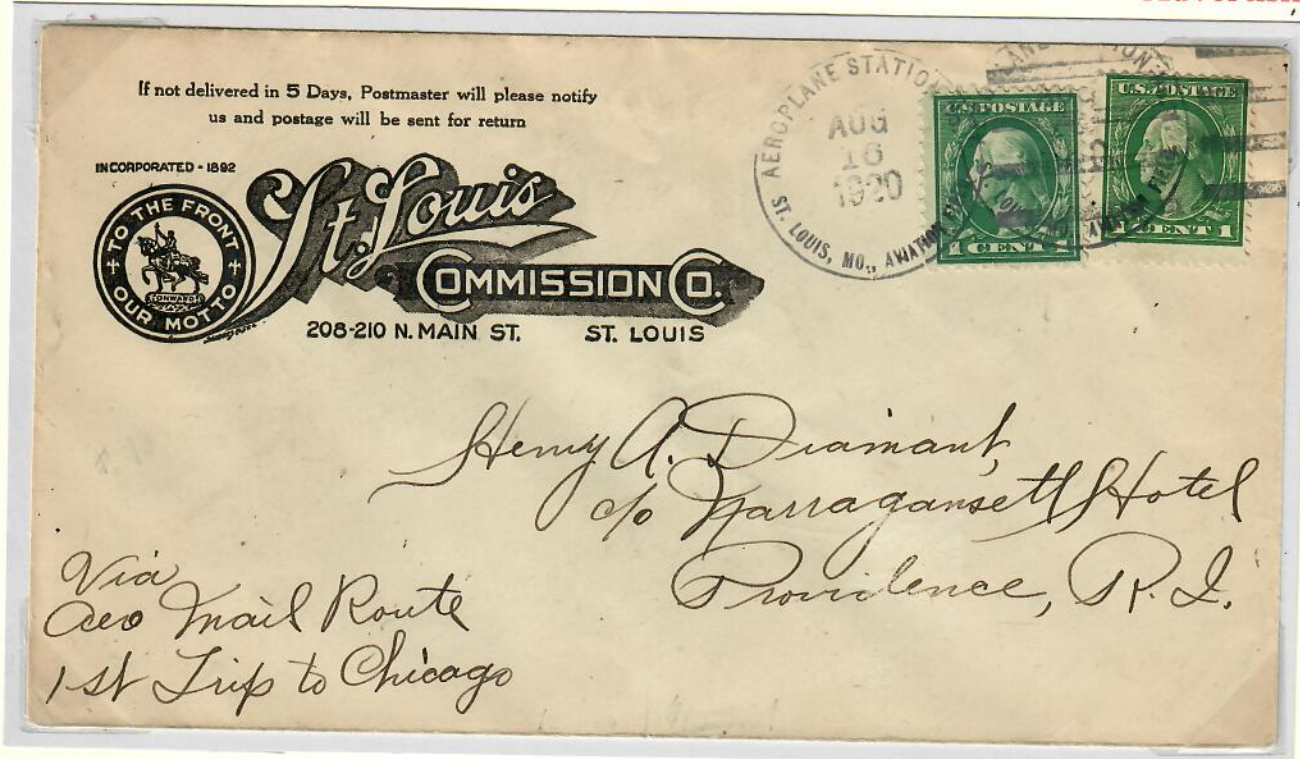 If not delivered in 5 Days, Postmaster will please notify
us and postage will be sent for return
INCORPORATED - 1892
TO THE FRONT
OUR MOTTO
ONWARD
St. Louis
COMMISSION CO.
208-210 N. MAIN ST. ST. LOUIS
AEROPLANE STATION
AUG
16
1920
ST. LOUIS, MO., AVIATION
U.S. POSTAGE
1 CENT 1
U.S. POSTAGE
1 CENT 1
Henry A. Diamant,
c/o Narragansett Hotel
Providence, R. I.
Via
Aeo Mail Route
1st Trip to Chicago